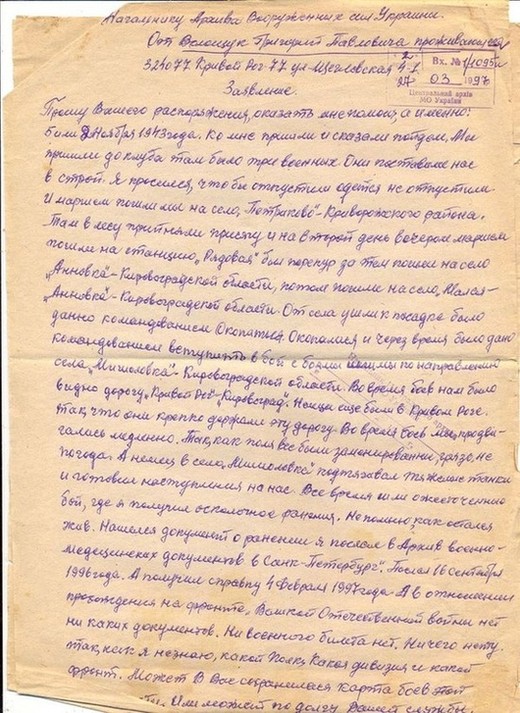 Начальнику Архива Вооруженных сил Украины.
От Велощук Григорий Павловича проживающего
324077 Кривой Рог-77 ул-Щегловская
Вх. № 1/1095
27 03 1997
Центральний архів
МО України
Заявление.
Прошу Вашего распоряжения, оказать мне помощ, а именно:
6 или 8 Ноября 1943 года. Ко мне пришли и сказали пойдем. Мы
пришли до клуба там было три военных. Они поставили нас
в строй. Я просился, чтобы отпустили одется не отпустили
И маршем пошли мы на село, "Петриково"-Криворожского района.
Там в лесу приняли присягу и на второй день вечером маршем
пошли на станцию, "Рядовая" был перекур за тем пошли на село
"Анновка"-Кировоградской области, потом пошли на село, "Малая-
"Анновка"-Кировоградской области. От села ушли к посадке было
данно командыванием Окопаться. Окопалися и через время было дано
командыванием вступить в бой с боями шли мы по направлению
села "Мишеловка"-Кировоградской области. Во время боев нам было
видно дорогу "Кривой Рог"-"Кировоград". Немци още были в Кривом Роге.
так, что они крепко держали эту дорогу. Во время боев мы, продви-
гались медленно. Так, как поля все были заминированни, грязь, не
погода. А немец в село, "Мишеловка" подтягивал тяжелые танки
и готовил наступления на нас. Все время шли ожесточенние
бой, где я получил осколочное ранения. Не помню, как остался
жив. Нашелся документ о ранении я послал в Архив военно-
медецинских документов в Санк-Петербург". Послал 16 Сентября
1996 года. А получил справку 4 Февраля 1997 года. А в отношении
прохождения на фронте, Великой Отечественной войни нет
ни каких документов. Ни военного билета нет. Ничего нету.
так, как я незнаю, какой полк, Какая дивизия и какой
фронт. Может В Вас сохранилася карта боев этой
Или может по долгу Вашей службы.